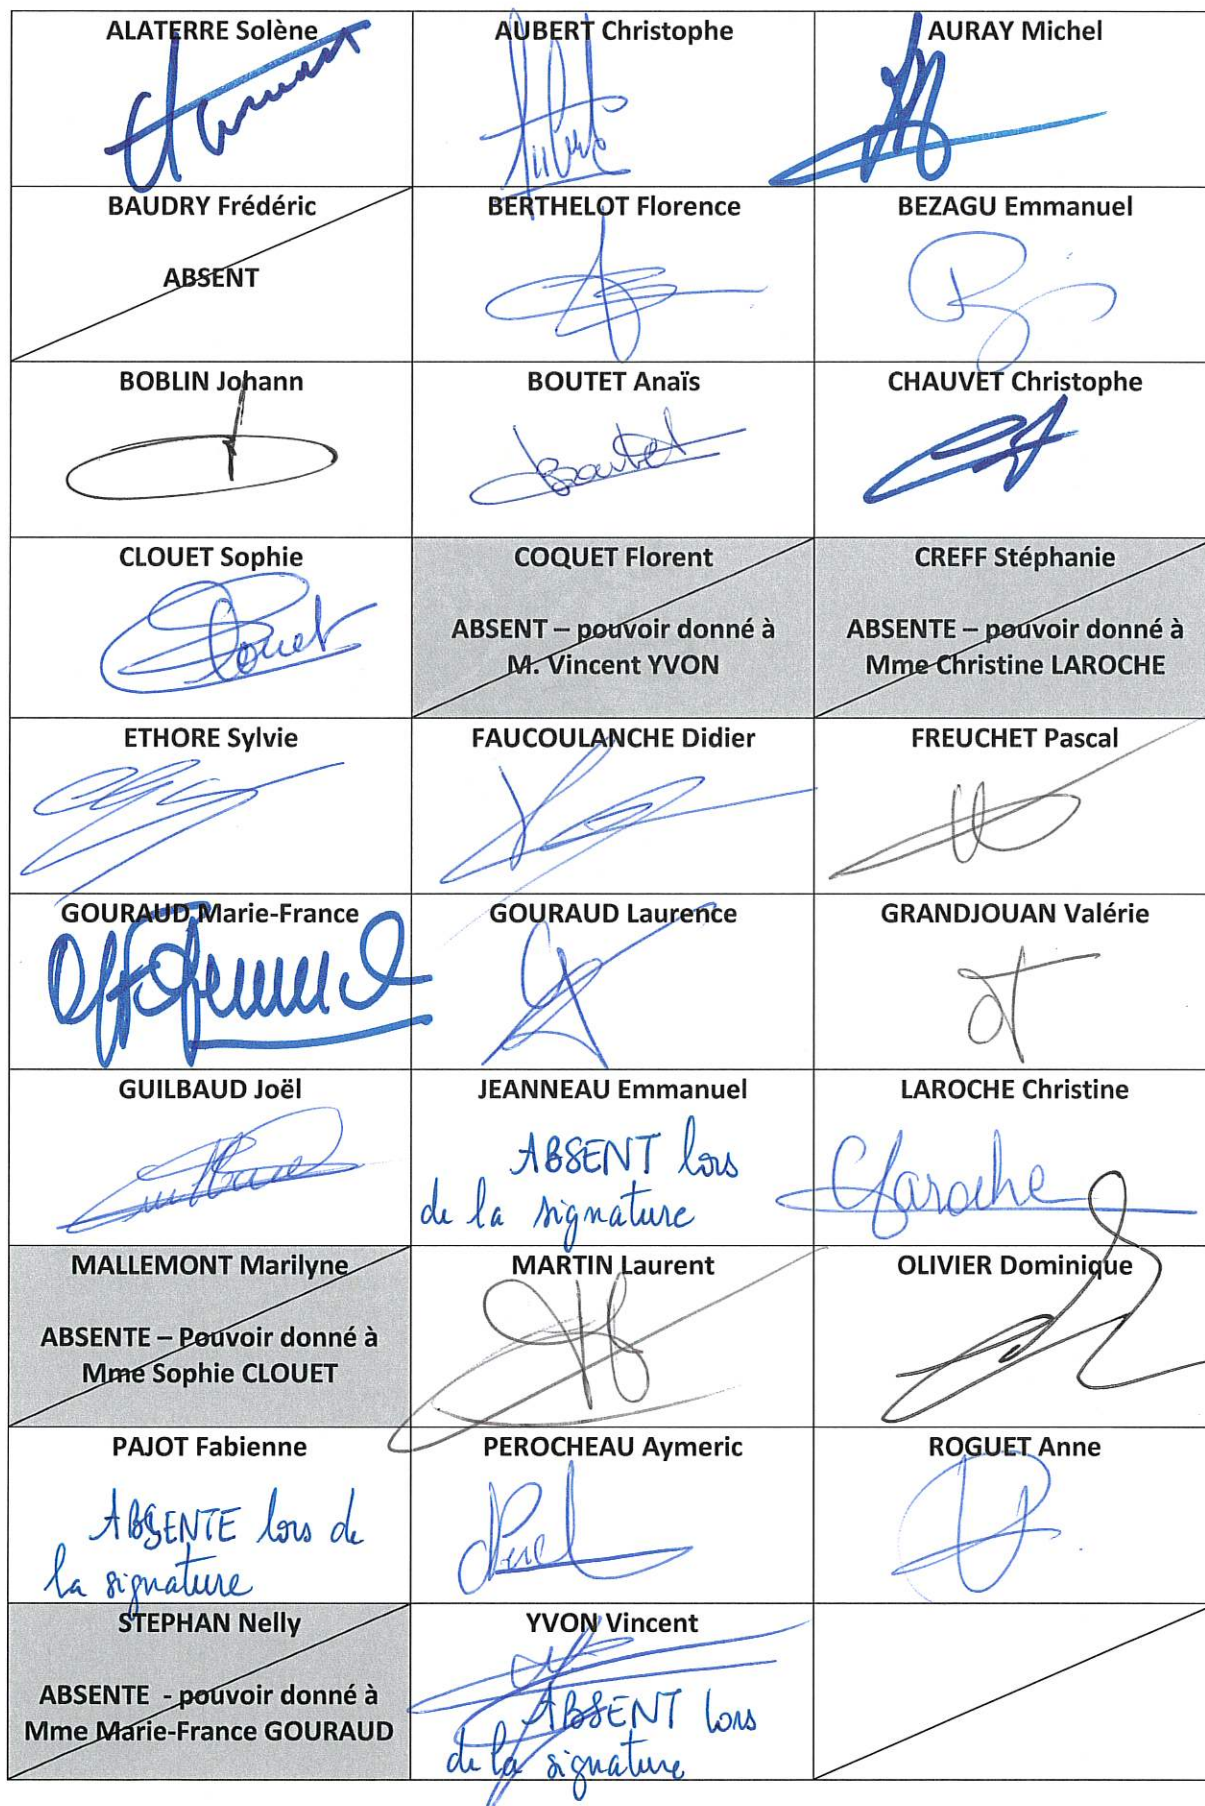 ALATERRE Solène
AUBERT Christophe
AURAY Michel
BAUDRY Frédéric
ABSENT
BERTHELOT Florence
BEZAGU Emmanuel
BOBLIN Johann
BOUTET Anaïs
Boutet
CHAUVET Christophe
CLOUET Sophie
Clouet
COQUET Florent
ABSENT – pouvoir donné à
M. Vincent YVON
CREFF Stéphanie
ABSENTE – pouvoir donné à
Mme Christine LAROCHE
ETHORE Sylvie
FAUCOULANCHE Didier
FREUCHET Pascal
GOURAUD Marie-France
GOURAUD Laurence
GRANDJOUAN Valérie
GUILBAUD Joël
JEANNEAU Emmanuel
ABSENT lors
de la signature
LAROCHE Christine
CLaroche
MALLEMONT Marilyne
ABSENTE – Pouvoir donné à
Mme Sophie CLOUET
MARTIN Laurent
OLIVIER Dominique
PAJOT Fabienne
ABSENTE lors de
la signature
PEROCHEAU Aymeric
ROGUET Anne
STEPHAN Nelly
ABSENTE - pouvoir donné à
Mme Marie-France GOURAUD
YVON Vincent
ABSENT lors
de la signature